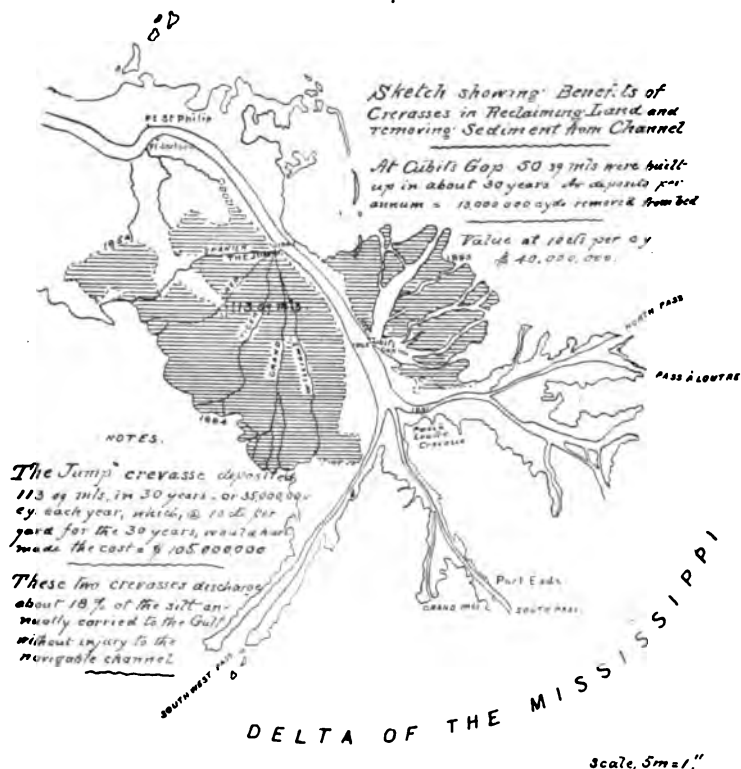 Sketch showing Benefits of
Crevasses in Reclaiming Land and
removing Sediment from Channel
At Cubits Gap 50 sq mls were built
up in about 30 years Av deposits per
annum = 13,000 000 cyds removed from bed
Value at 10 cts per cy
$ 40,000,000.
Ft St Philip
Ft Jackson
THE JUMP
113 sq mls
GRAND
NORTH PASS
PASS À LOUTRE
1891
Pass à
Loutre
Crevasse
NOTES.
The "Jump" crevasse deposited
113 sq mls, in 30 years - or 35,000,000
cy. each year, which, @ 10 cts per
yard for the 30 years, would have
made the cost = $ 105,000,000
These two crevasses discharge
about 18 % of the silt an-
nually carried to the Gulf
without injury to the
navigable channel
Port Eads
SOUTH PASS
SOUTHWEST PASS
DELTA OF THE MISSISSIPPI
Scale, 5m = 1."